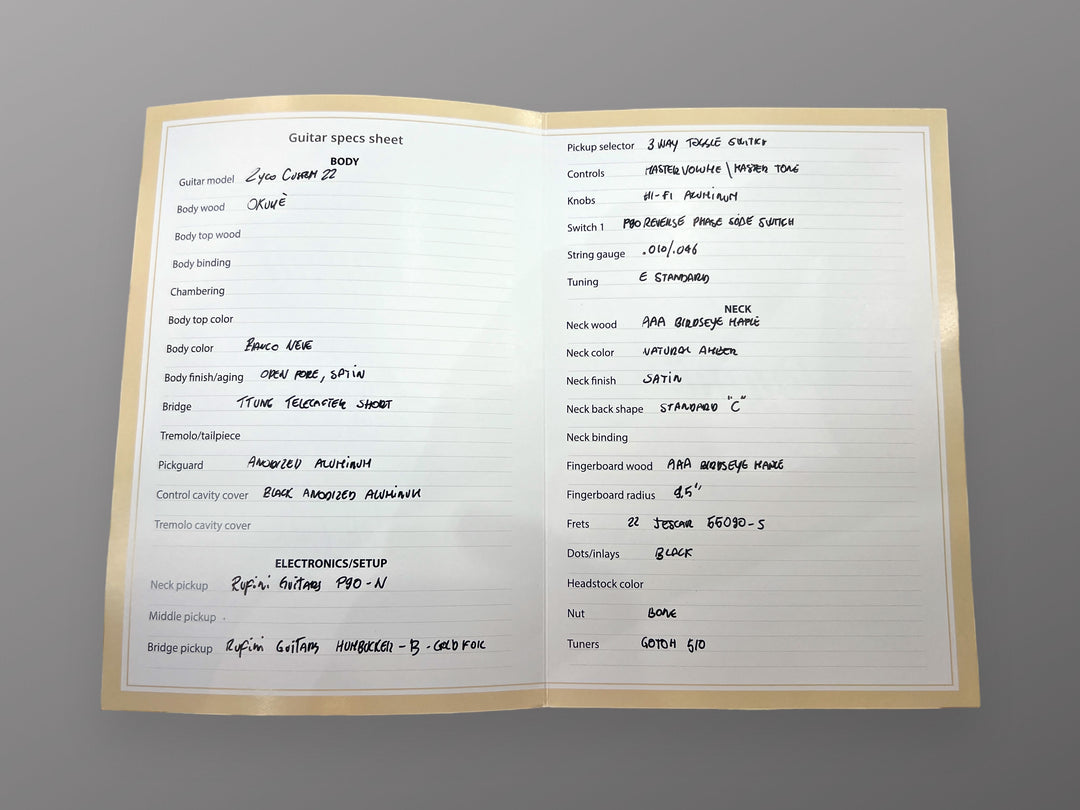 Guitar specs sheet
BODY
Guitar model
Body wood OKUMÈ
Body top wood
Body binding
Chambering
Body top color
Body color NEVE
Body finish/aging OPEN PORE, SATIN
Bridge TTUNG TELECASTER SHORT
Tremolo/tailpiece
Pickguard ANODIZED ALUMINUM
Control cavity cover BLACK ANODIZED ALUMINUM
Tremolo cavity cover
ELECTRONICS/SETUP
Neck pickup Rufini GUITARS P90-N
Middle pickup
Bridge pickup Rufini GUITARS HUMBUCKER-B-GOLDFOIL
Pickup selector 3 WAY TOGGLE SWITCH
Controls MASTER VOLUME \ MASTER TONE
Knobs HI-FI ALUMINUM
Switch 1 P90 REVERSE PHASE SIDE SWITCH
String gauge .010/.046
Tuning E STANDARD
NECK
Neck wood AAA BIRDSEYE MAPLE
Neck color NATURAL AMBER
Neck finish SATIN
Neck back shape STANDARD "C"
Neck binding
Fingerboard wood AAA BIRDSEYE MAPLE
Fingerboard radius 9.5"
Frets 22 JESCAR 55090-S
Dots/inlays BLACK
Headstock color
Nut BONE
Tuners GOTOH 510